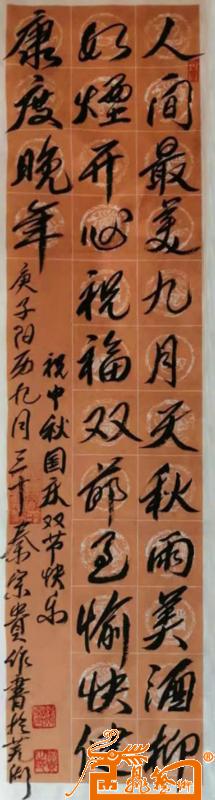 人间最美九月天秋雨美酒柳
如煙开心祝福双節至愉快健
康度晚年
祝中秋国庆双节快乐
庚子阳历九月三十秦宗貴作書於芜湖